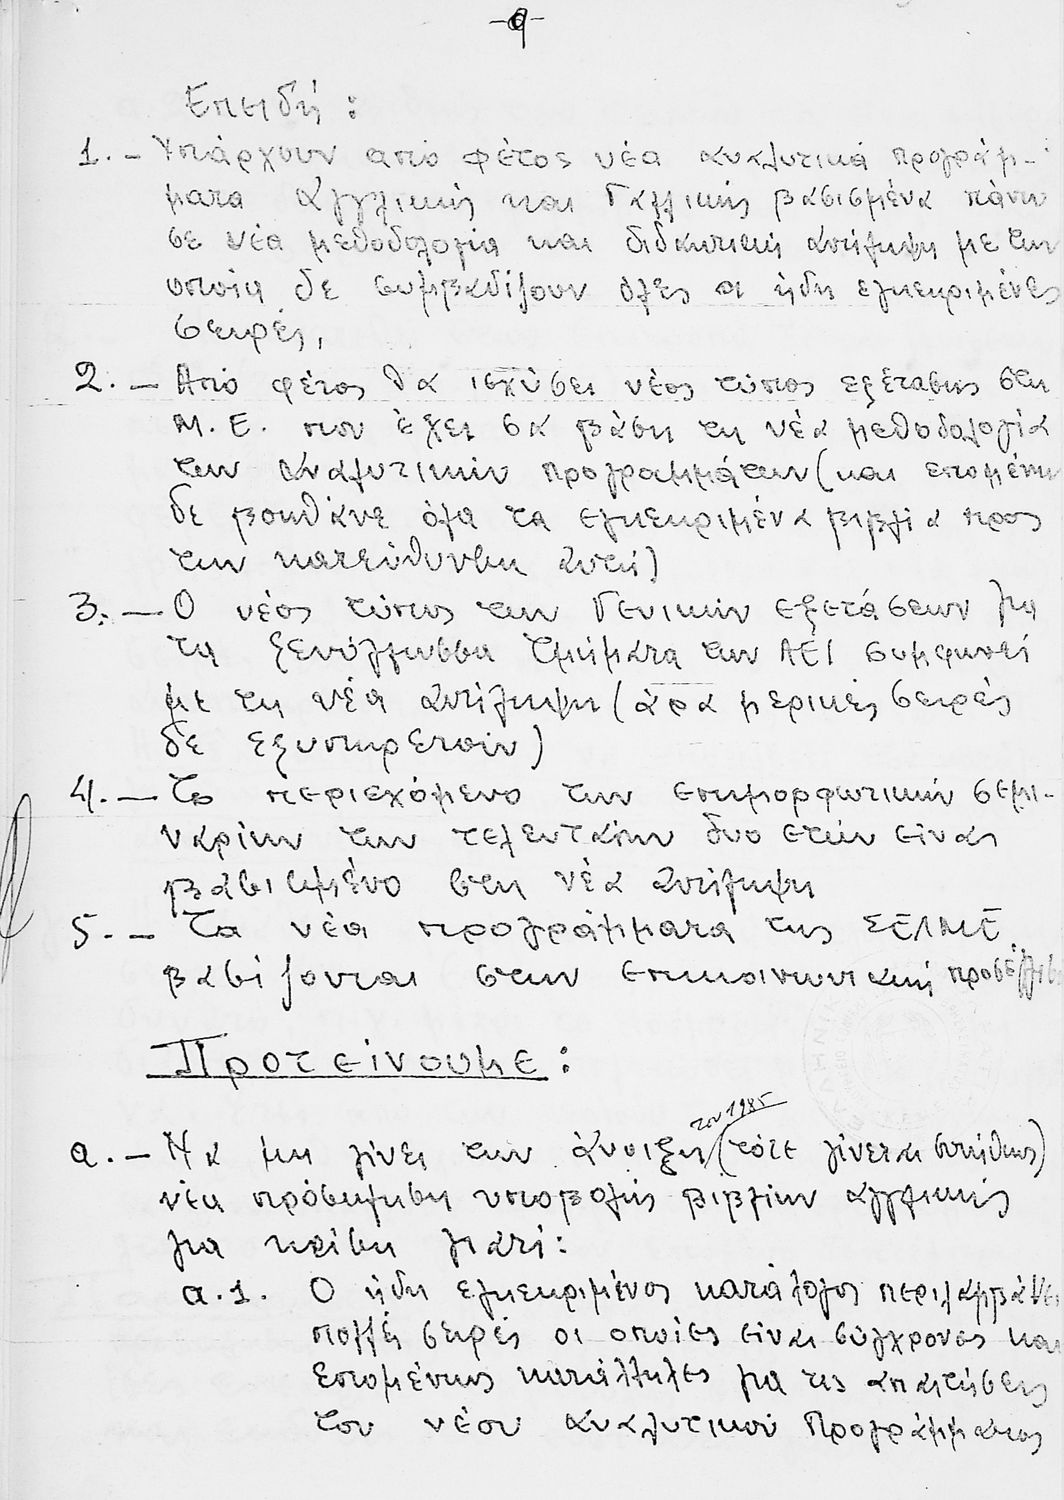 -9-
Επειδή :
1. - Υπάρχουν από φέτος νέα αναλυτικά προγράμ-
ματα Αγγλικής και Γαλλικής βασισμένα πάνω
σε νέα μεθοδολογία και διδακτική αντίληψη με την
οποία δε συμβαδίζουν όλες οι ήδη εγκεκριμένες
σειρές.
2. - Από φέτος θα ισχύσει νέος τύπος εξέτασης στη
Μ.Ε. που έχει σα βάση τη νέα μεθοδολογία
των αναλυτικών προγραμμάτων (και επομένως
δε βοηθάνε όλα τα εγκεκριμένα βιβλία προς
την κατεύθυνση αυτή)
3. - Ο νέος τύπος των Γενικών εξετάσεων για
τα ξενόγλωσσα τμήματα των ΑΕΙ συμφωνεί
με τη νέα αντίληψη (άρα μερικές σειρές
δε εξυπηρετούν)
4. - Το περιεχόμενο των επιμορφωτικών σεμι-
ναρίων των τελευταίων δυο ετών είναι
βασισμένο στη νέα αντίληψη
5. - Τα νέα προγράμματα της ΣΕΛΜΕ
βασίζονται στην επικοινωνιακή προσέγγιση
Προτείνουμε :
του 1985
α. - Να μη γίνει την άνοιξη (τότε γίνεται συνήθως)
νέα πρόσκληση υποβολής βιβλίων αγγλικής
για κρίση γιατί :
α.1. Ο ήδη εγκεκριμένος κατάλογος περιλαμβάνει
πολλές σειρές οι οποίες είναι σύγχρονες και
επομένως κατάλληλες για τις απαιτήσεις
του νέου αναλυτικού Προγράμματος